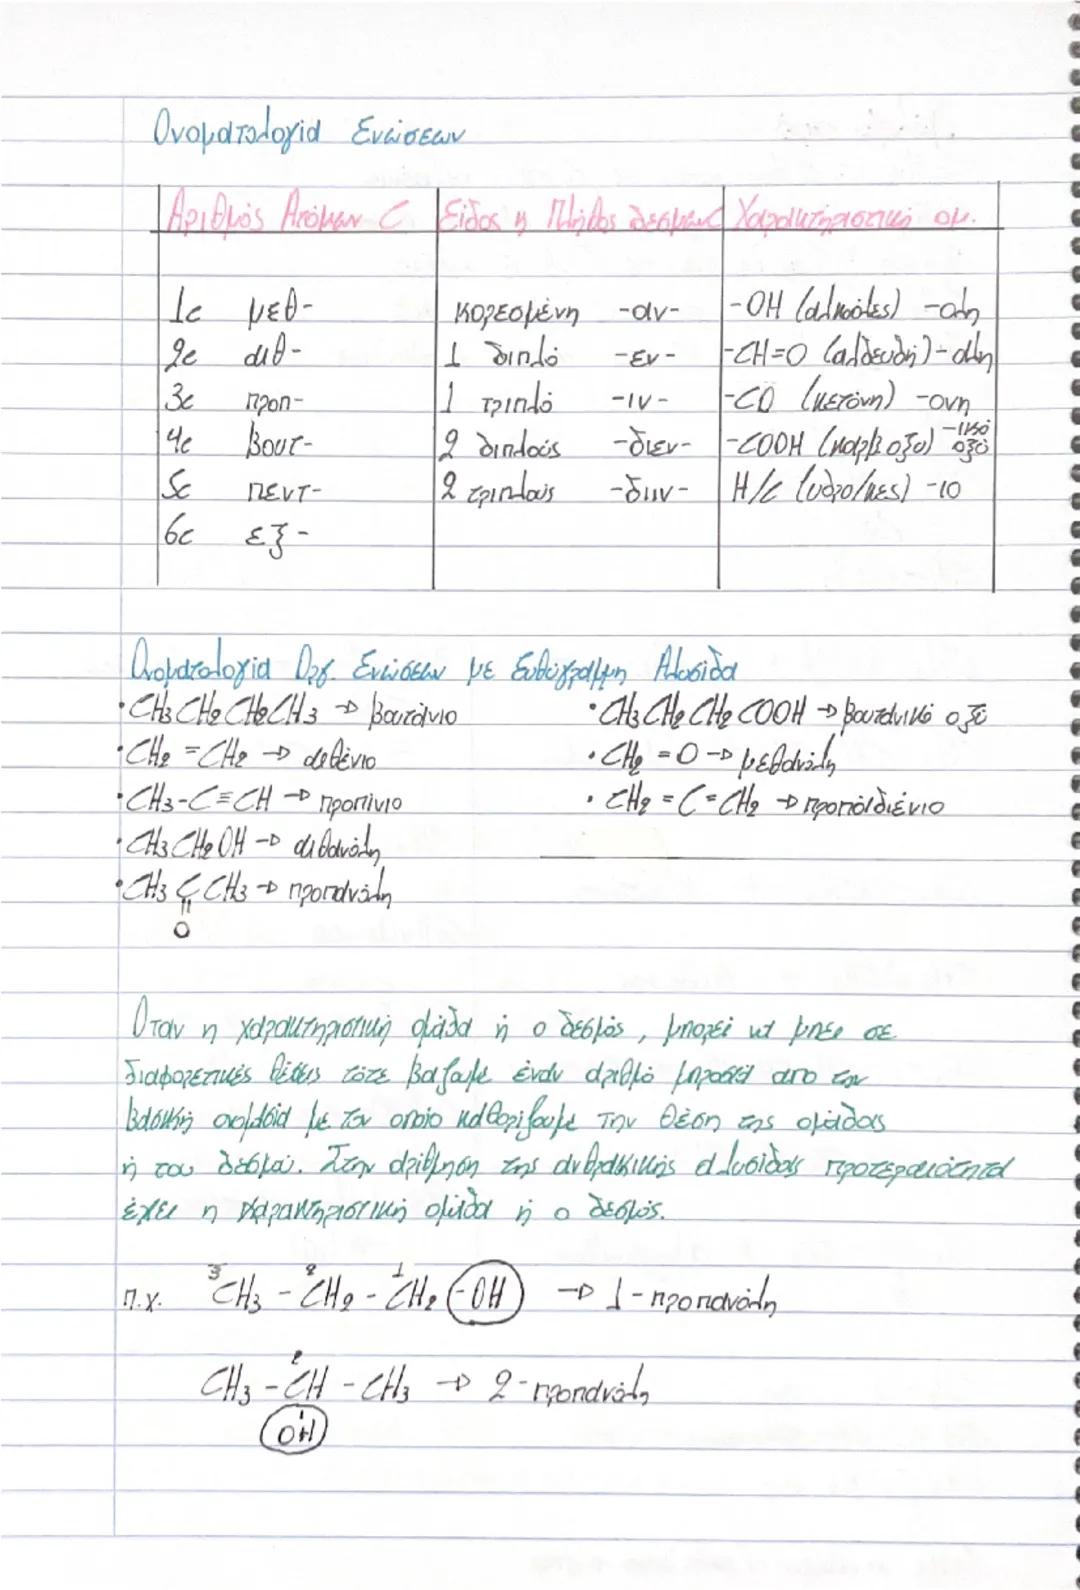 Ονοματολογία Ενώσεων
Αριθμός Ατόμων C Είδος η Πλήθος δεσμών Χαρακτηριστική ομ.
1c μεθ- κορεσμένη -αν- -OH (αλκοόλες) -ολη
2c αιθ- 1 διπλό -εν- -CH=O (αλδευδη) -αλη
3c προπ- 1 τριπλό -ιν- -CO (κετόνη) -ονη
4c βουτ- 2 διπλούς -διεν- -COOH (καρβοξυ) -ικό οξύ
5c πεντ- 2 τριπλούς -διιν- H/C (υδρο/κες) -ιο
6c εξ-
Ονοματολογία Οργ. Ενώσεων με Ευθύγραμμη Αλυσίδα
• CH3 CH2 CH2 CH3 → βουτάνιο • CH3 CH2 CH2 COOH → βουτανικό οξύ
• CH2 = CH2 → αιθένιο • CH2 = O → μεθανάλη
• CH3-C≡CH → προπίνιο • CH2 = C = CH2 → προπαδιένιο
• CH3 CH2 OH → αιθανόλη
• CH3 C CH3 → προπανόλη
||
O
Όταν η χαρακτηριστική ομάδα ή ο δεσμός, μπορεί να μπει σε
διαφορετικές θέσεις τότε βάζουμε έναν αριθμό μπροστά απο την
βασική ονομασία με τον οποίο καθορίζουμε την θέση της ομάδας
ή του δεσμού. Στην αρίθμηση της ανθρακικής αλυσίδας προτεραιότητα
έχει η χαρακτηριστική ομάδα ή ο δεσμός.
π.χ. 3 CH3 - 2 CH2 - 1 CH2 -OH → 1-προπανόλη
2
CH3 - CH - CH3 → 2-προπανόλη
OH